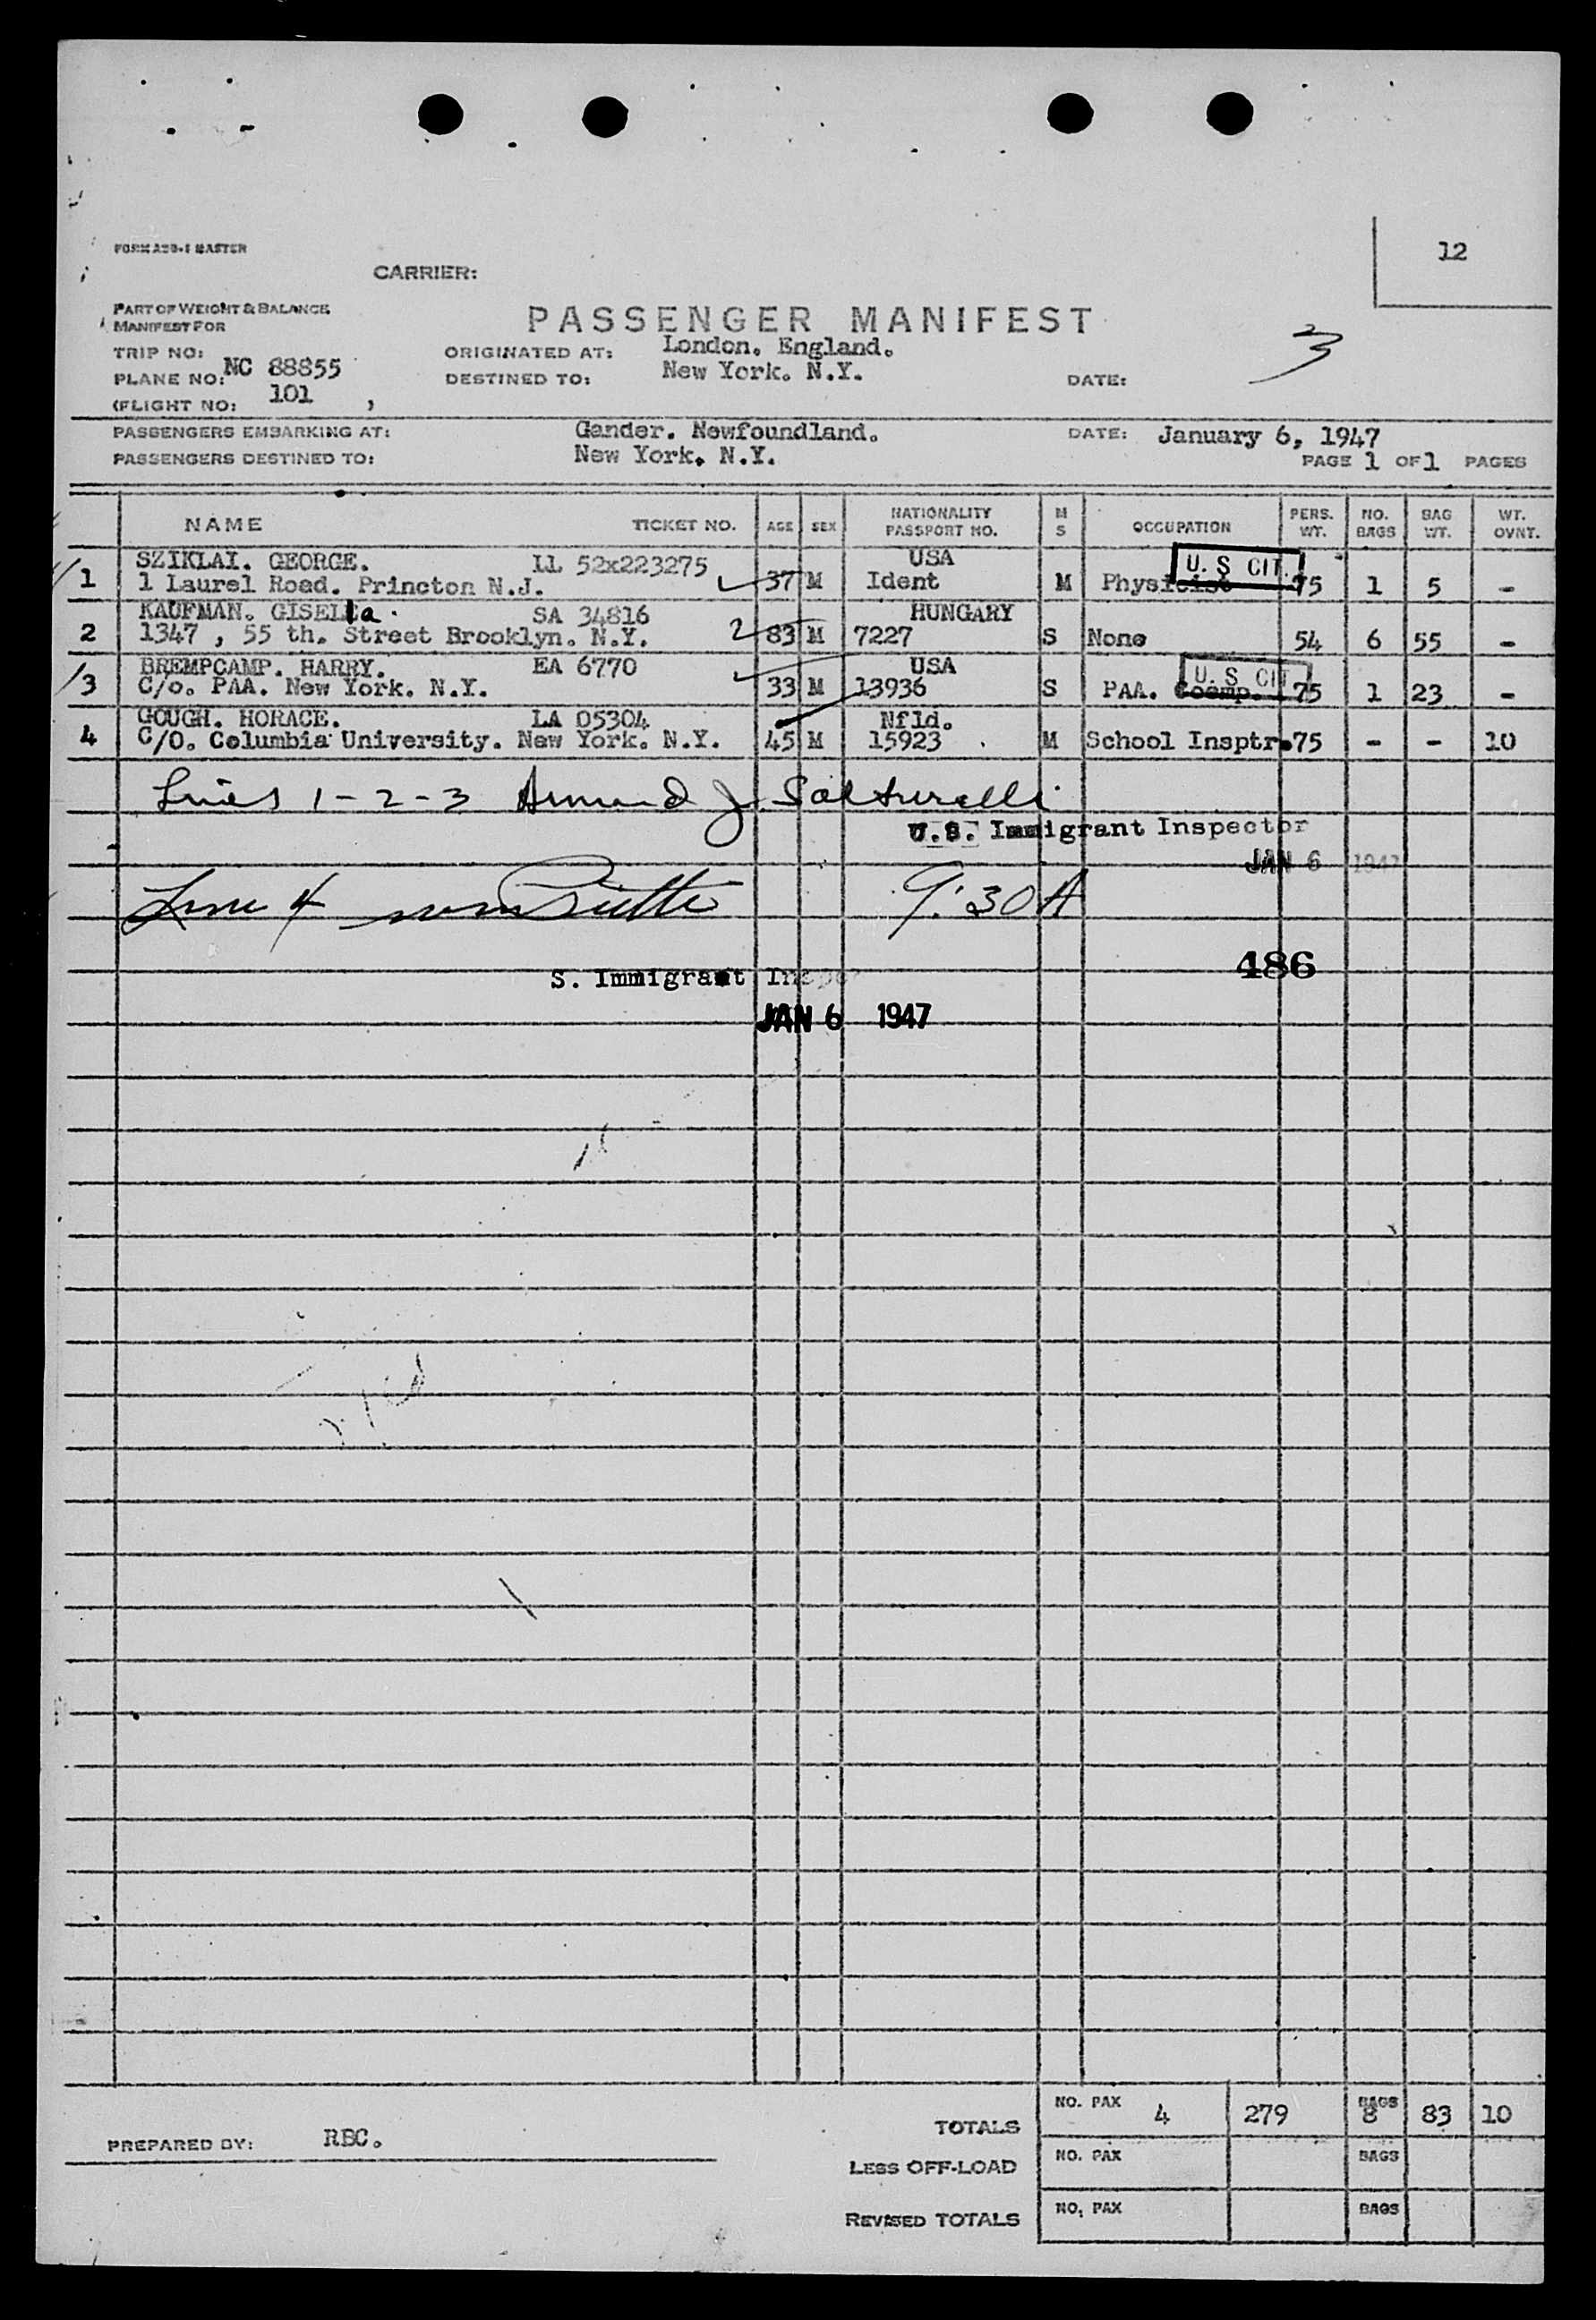 FORM A20-1 MASTER
12
CARRIER:
PART OF WEIGHT & BALANCE
MANIFEST FOR
PASSENGER MANIFEST
3
TRIP NO:
ORIGINATED AT: London. England.
PLANE NO: NC 88855
DESTINED TO: New York. N.Y.
DATE:
(FLIGHT NO: 101 )
PASSENGERS EMBARKING AT: Gander. Newfoundland.
DATE: January 6, 1947
PASSENGERS DESTINED TO: New York. N.Y.
PAGE 1 OF 1 PAGES
NAME TICKET NO. AGE SEX NATIONALITY PASSPORT NO. M S OCCUPATION PERS. WT. NO. BAGS BAG WT. WT. OVNT.
SZIKLAI. GEORGE. LL 52x223275 USA U. S CIT.
1 1 Laurel Road. Princton N.J. 37 M Ident M Physicist 75 1 5 -
KAUFMAN. GISELLa. SA 34816 HUNGARY
2 1347 , 55 th. Street Brooklyn. N.Y. 2 83 M 7227 S None 54 6 55 -
BREMPCAMP. HARRY. EA 6770 USA U. S CIT
3 C/o. PAA. New York. N.Y. 33 M 13936 S PAA. 75 1 23 -
GOUGH. HORACE. LA 05304 Nfld.
4 C/O. Columbia University. New York. N.Y. 45 M 15923 M School Insptr. 75 - - 10
Lines 1-2-3 Armand J.
U.S. Immigrant Inspector
JAN 6 1947
Line 4 9:30 A
486
S. Immigrant Inspe
JAN 6 1947
TOTALS NO. PAX 4 279 BAGS 8 83 10
PREPARED BY: RBC.
LESS OFF-LOAD NO. PAX BAGS
REVISED TOTALS NO. PAX BAGS